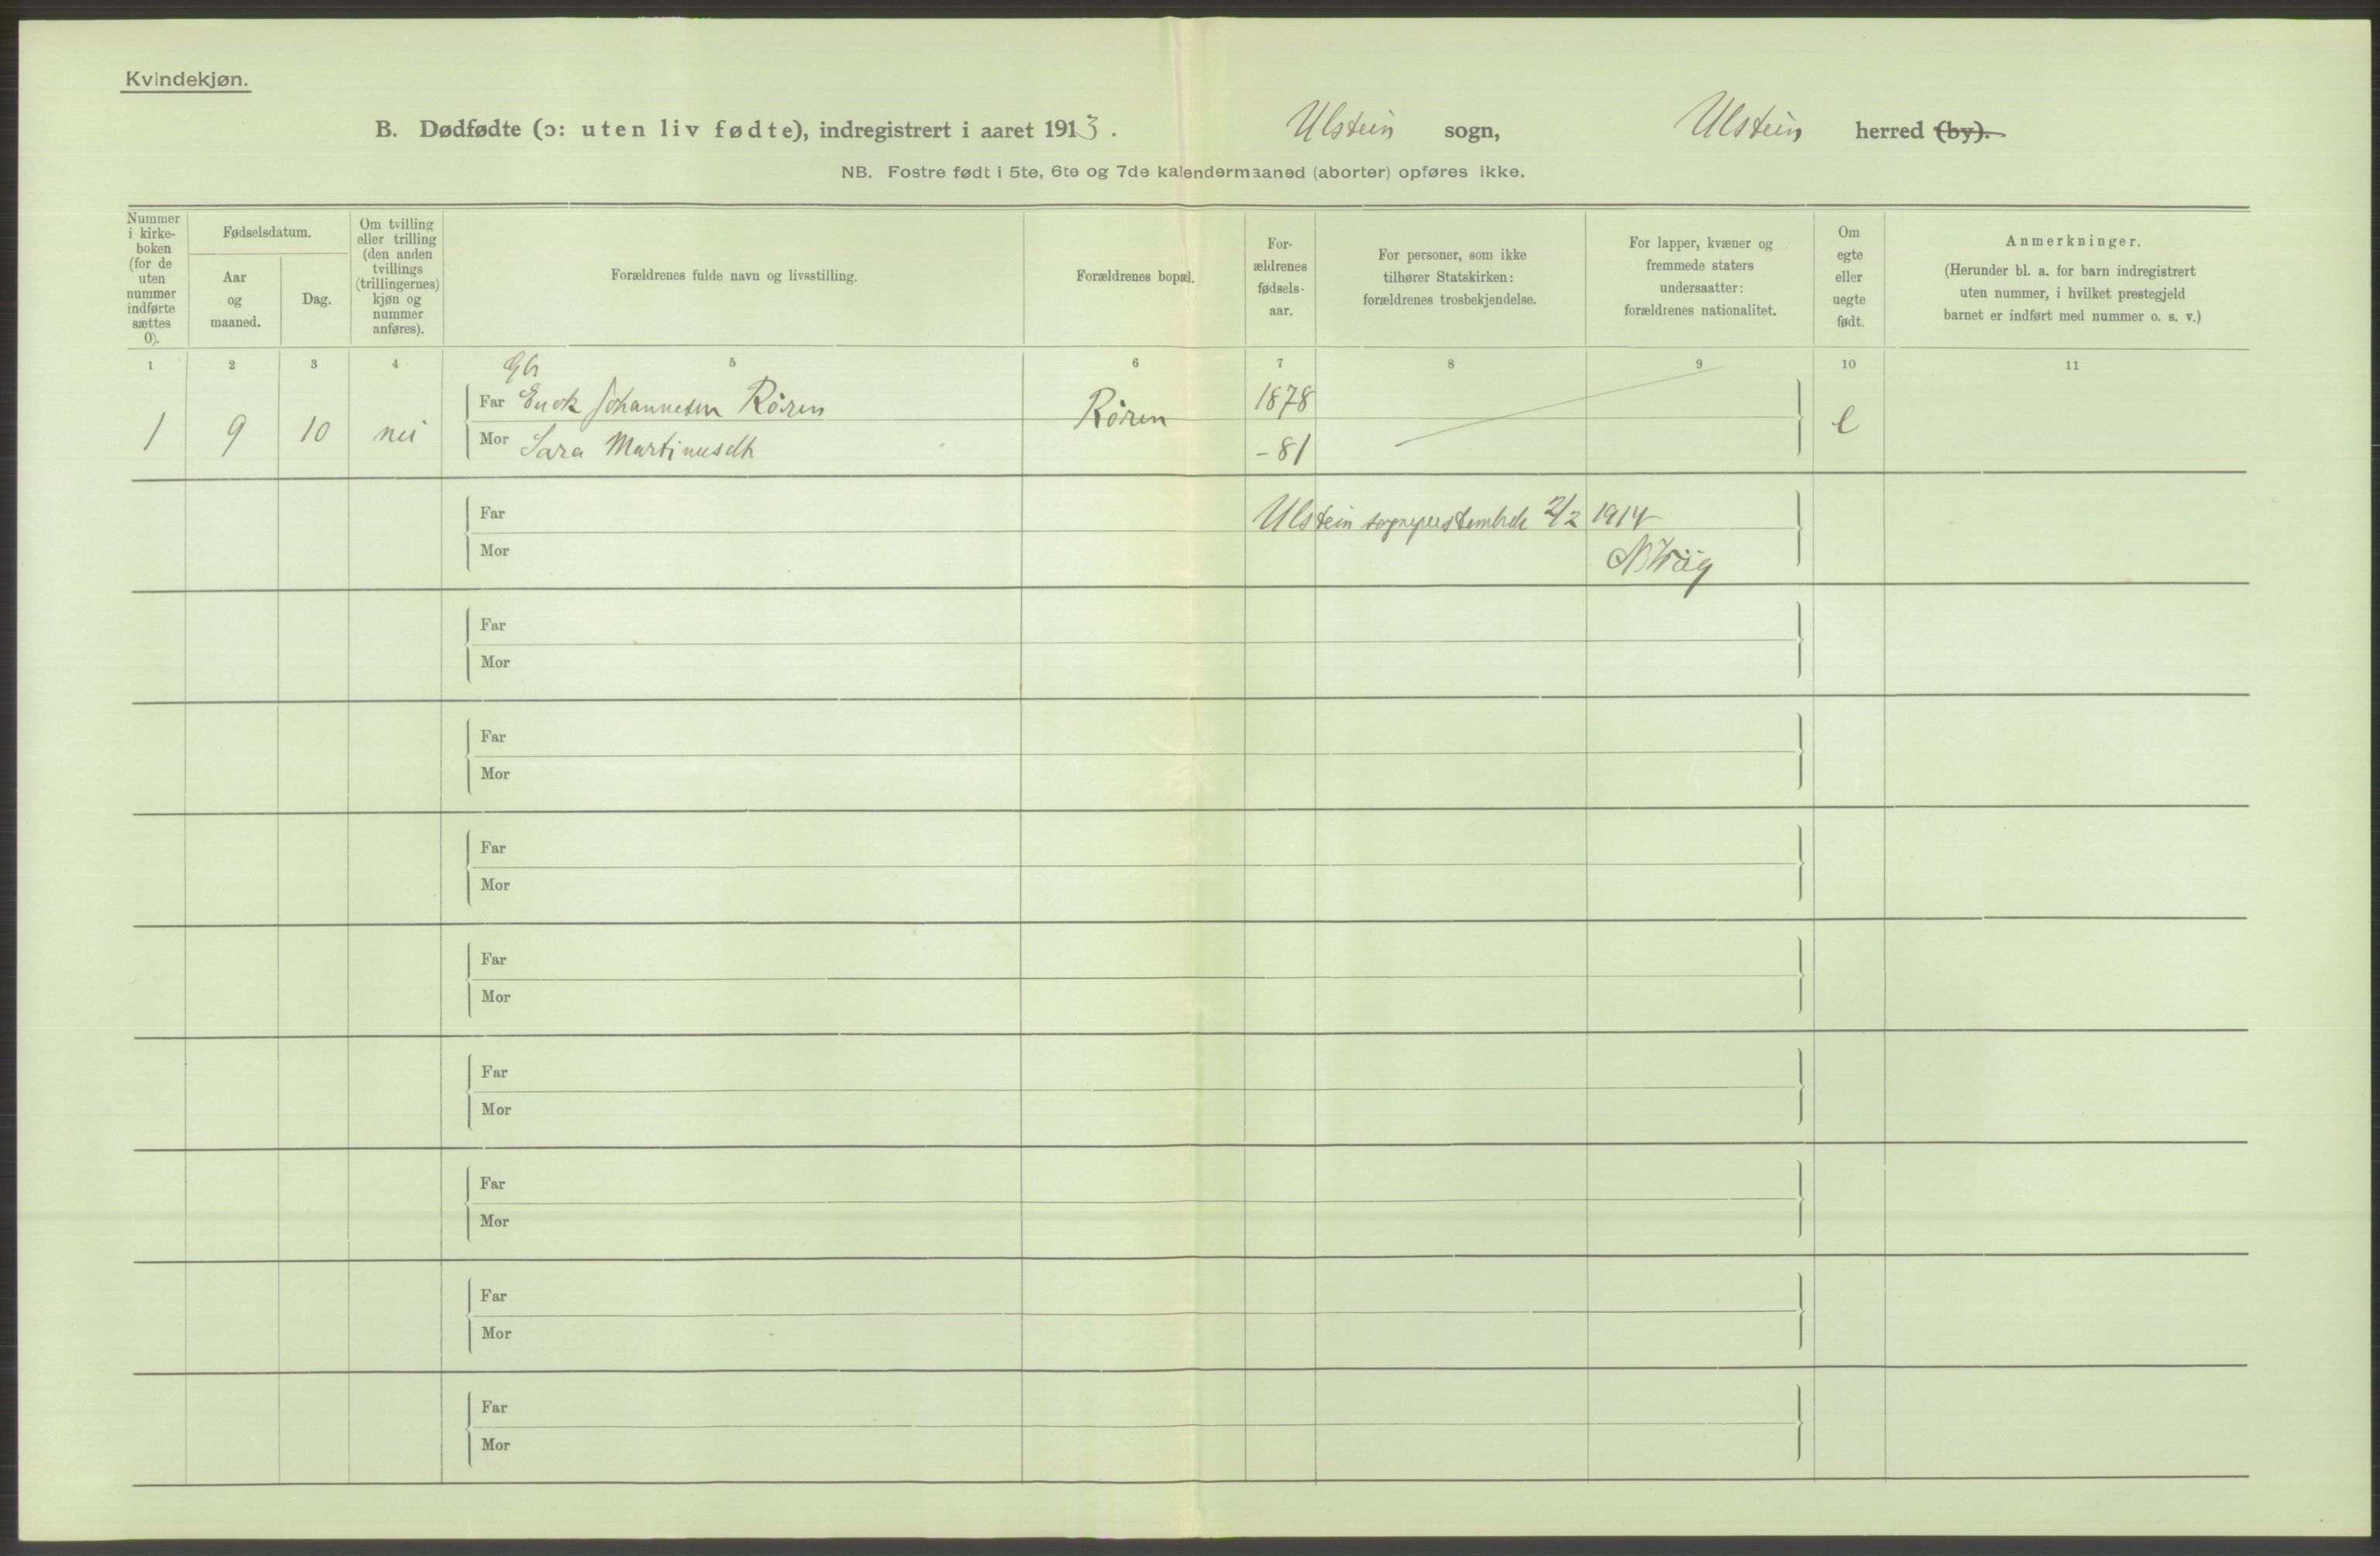 Kvindekjøn.
B. Dødfødte (ɔ: uten liv fødte), indregistrert i aaret 1913. Ulstein sogn, Ulstein herred (by).
NB. Fostre født i 5te, 6te og 7de kalendermaaned (aborter) opføres ikke.
Nummer i kirke-boken (for de uten nummer indførte sættes 0).
Fødselsdatum.
Aar og maaned.
Dag.
Om tvilling eller trilling (den anden tvillings (trillingernes) kjøn og nummer anføres).
Forældrenes fulde navn og livsstilling.
Forældrenes bopæl.
For-ældrenes fødsels-aar.
For personer, som ikke tilhører Statskirken: forældrenes trosbekjendelse.
For lapper, kvæner og fremmede staters undersaatter: forældrenes nationalitet.
Om egte eller uegte født.
Anmerkninger.
(Herunder bl. a. for barn indregistrert uten nummer, i hvilket prestegjeld barnet er indført med nummer o. s. v.)
1 2 3 4 5 6 7 8 9 10 11
Gbr
Far Enok Johannesen Røren 1878
1 9 10 nei Røren e
Mor Sara Martinusdtr -81
Far Ulstein 2/2 1914
Mor
Far
Mor
Far
Mor
Far
Mor
Far
Mor
Far
Mor
Far
Mor
Far
Mor
Far
Mor